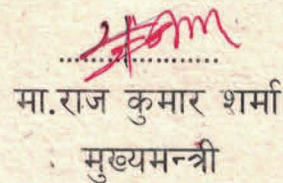 ....................
मा.राज कुमार शर्मा
मुख्यमन्त्री